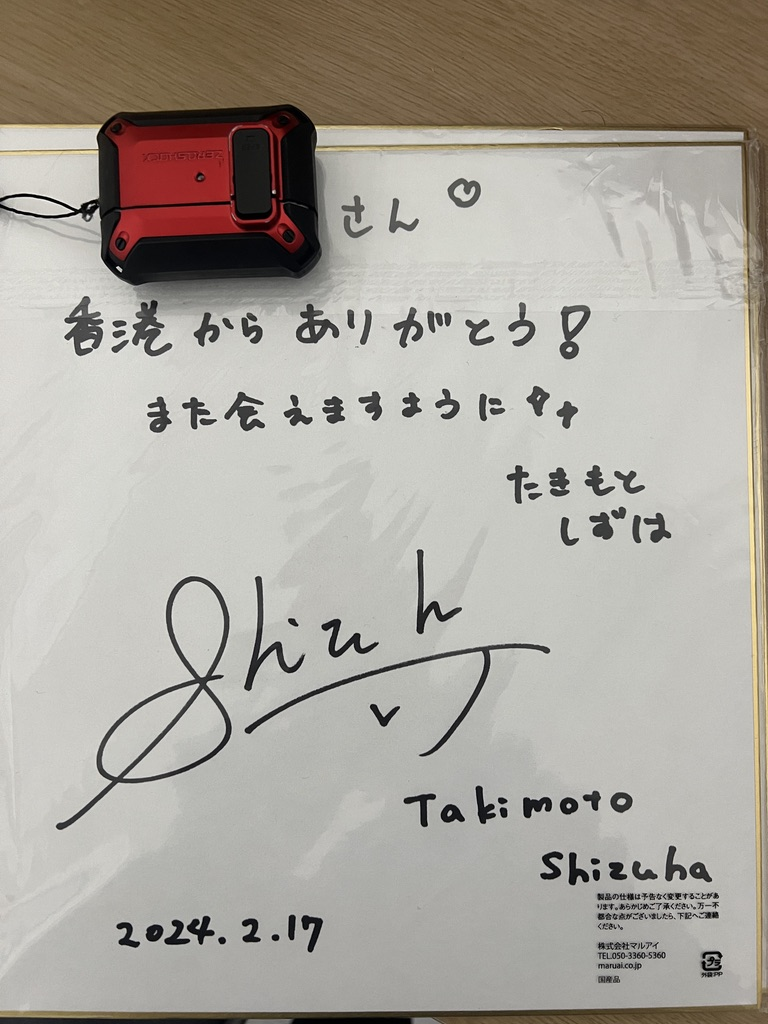 さん♡
香港からありがとう!
また会えますように
たきもと
しずは
Shizuh
Takimoto
Shizuha
2024.2.17
製品の仕様は予告なく変更することがあ
ります。あらかじめご了承ください。万一不
都合な点がございましたら、下記へご連絡
ください。
株式会社マルアイ
TEL.050-3360-5360
maruai.co.jp
国産品
プラ
外袋:PP